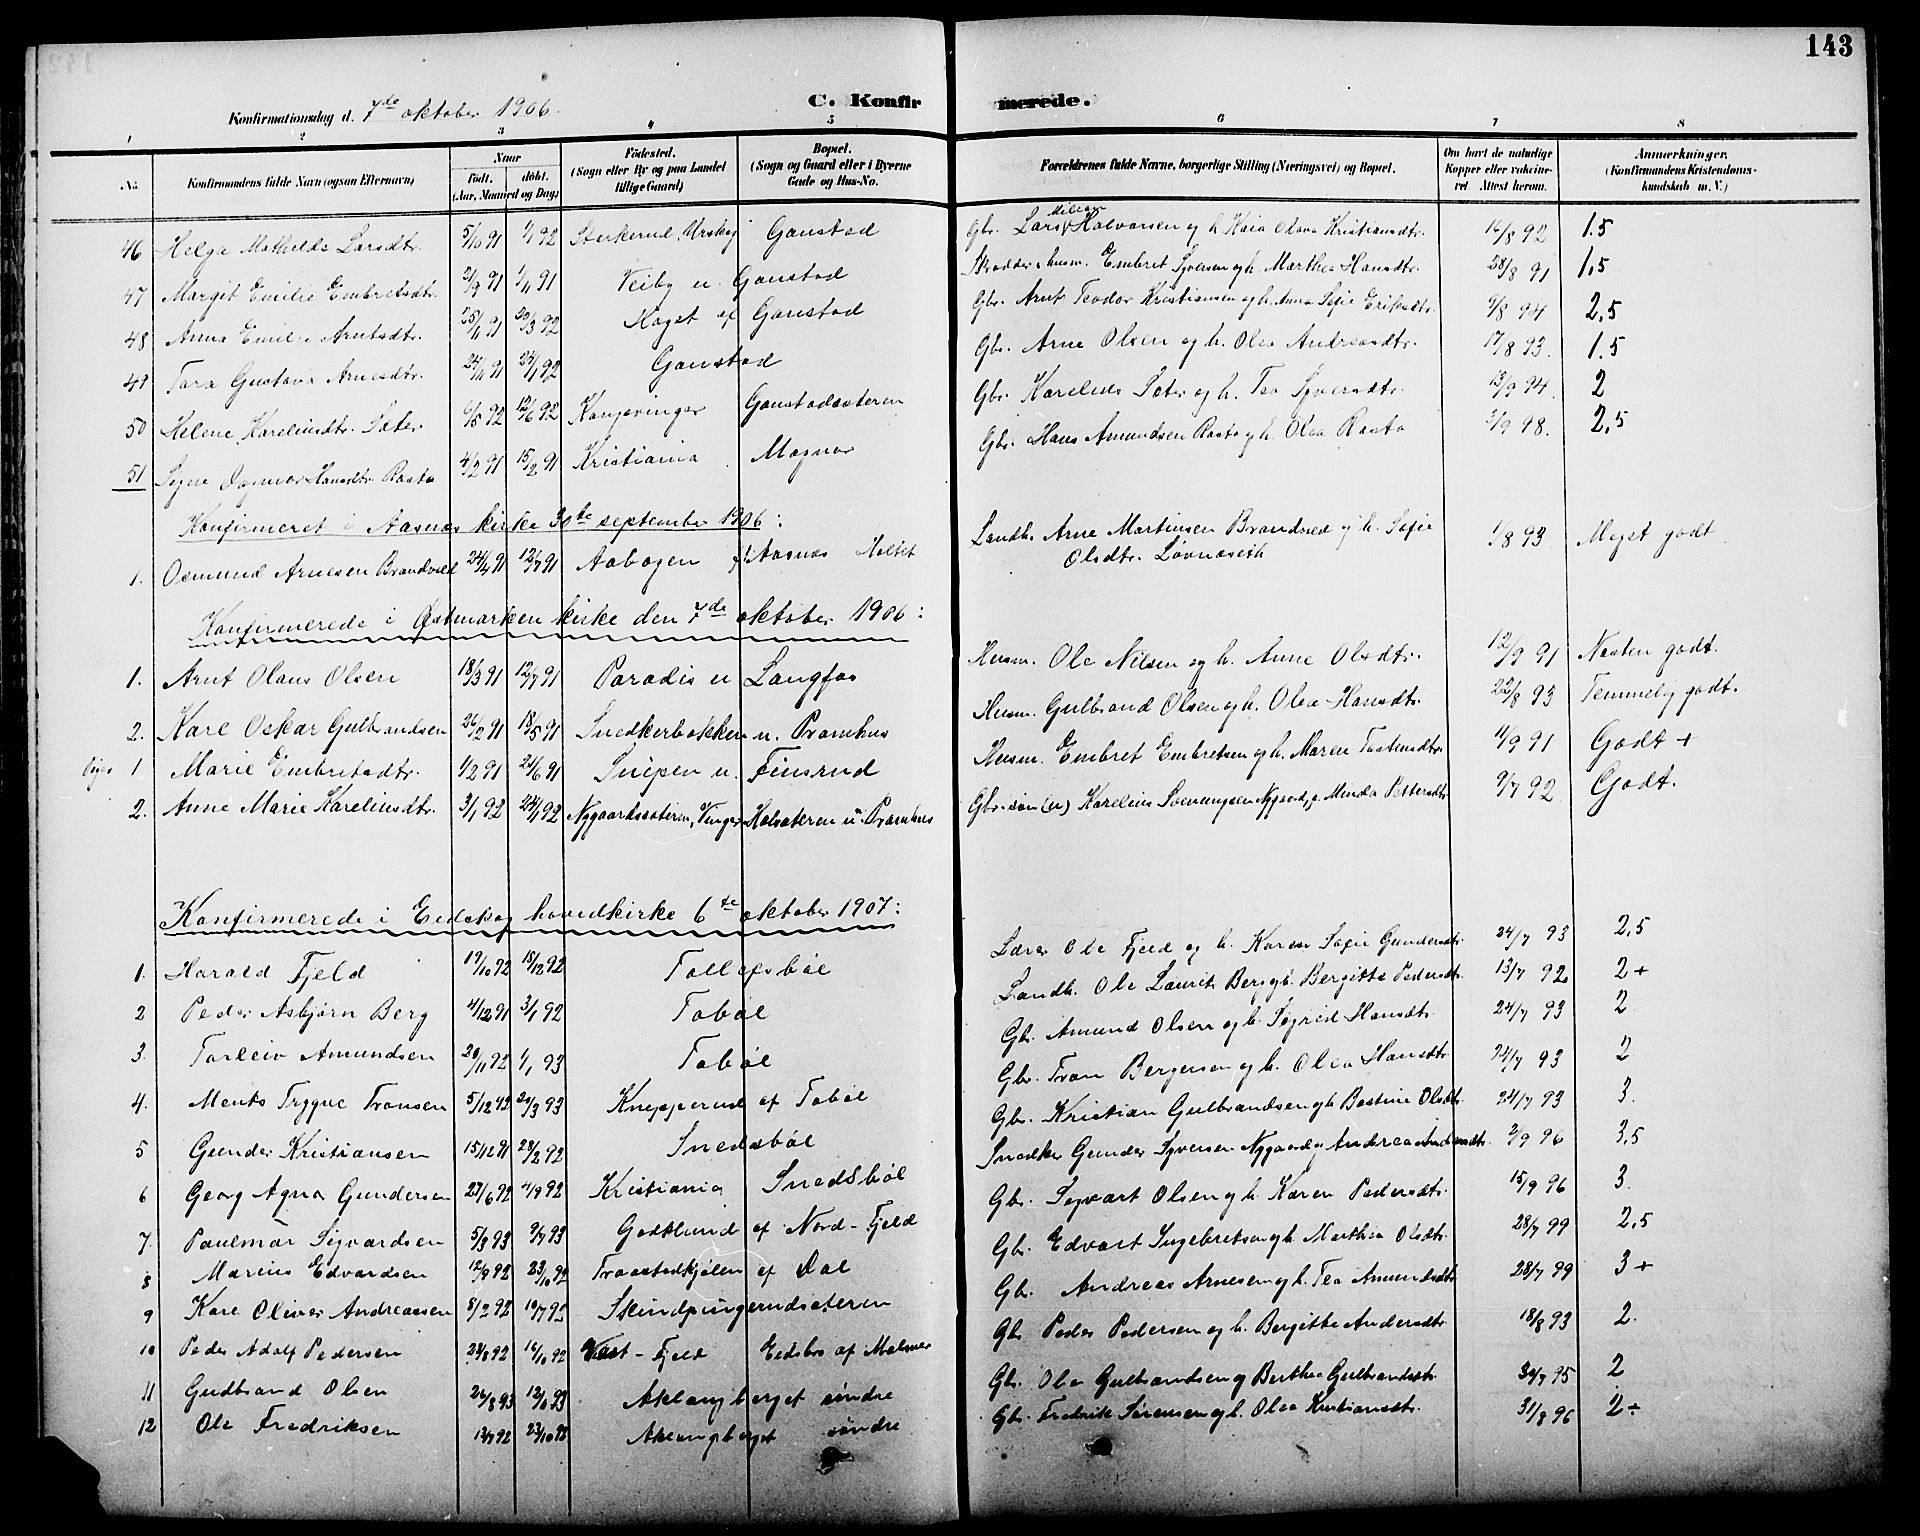 143
C. Konfirmerede.
Konfirmationsdag d. 7de oktober 1906.
1 2 3 4 5 6 7 8
No. Konfirmandens fulde Navn (ogsaa Efternavn) Naar født. døbt. (Aar, Maaned og Dag) Fødested. (Sogn eller By og paa Landet tillige Gaard) Bopæl. (Sogn og Gaard eller i Byerne Gade og Hus-No. Forældrenes fulde Navne, borgerlige Stilling (Næringsvei) og Bopæl. Om havt de naturlige Kopper eller vaksineret. Attest herom. Anmærkninger. (Konfirmandens Kristendomskundskab m. V.)
46 Helga Mathilde Larsdtr. 5/10 91 1/1 92 Sterkerud, Urskog Gaustad Gbr. Lars Halvorsen og h. Kaia Olava Kristiansdtr. 16/8 92 1.5
47 Margit Emilie Embretsdtr. 2/9 91 1/11 91 Veiby u. Gaustad Skrædder & husm. Embret Syversen og h. Marthea Hansdtr. 28/8 91 1,5
48 Anna Emilie Arntsdtr. 25/11 91 20/3 92 Haget af Gaustad Gbr. Arnt Teodor Kristiansen og h. Anna Sofie Eriksdtr. 9/8 94 2,5
49 Tora Gustava Arnesdtr. 24/11 91 24/1 92 Gaustad Gbr. Arne Olsen og h. Olea Andreasdtr. 17/8 93. 1.5
50 Helene Kareliusdtr. Sæter 6/5 92 12/6 92 Kongsvinger Gaustadsæteren Gbr. Karelius Sæter og h. Tea Syversdtr. 13/9 94. 2
51 Signe Dagmar Hansdtr. Rasta 4/2 91 15/2 91 Kristiania Magnor Gbr. Hans Amundsen Rasta og h. Olea Rasta 2/9 98. 2,5
Konfirmeret i Aasnes kirke 30te september 1906:
1. Osmund Arnesen Brandvold 24/4 91 12/7 91 Aabogen Aasnes Holtet Landh. Arne Martinsen Brandvold og h. Sofie Olsdtr. Løvnæseth 1/8 93 Meget godt
Konfirmerede i Østmarken kirke den 7de oktober 1906:
1. Arnt Olaus Olsen 18/3 91 12/7 91 Paradis u Langfos Husm. Ole Nilsen og h. Anne Olsdtr. 12/9 91 Næsten godt.
2. Kare Oskar Gulbrandsen 26/2 91 18/5 91 Snedkerbakken u. Pramhus Husm. Gulbrand Olsen og h. Olea Hansdtr. 22/8 93 Temmelig godt.
Piger 1 Marie Embretsdtr. 1/2 91 21/6 91 Snipen u. Finsrud Husm. Embret Embretsen og h. Maren Tostensdtr. 11/9 91 Godt +
2. Anne Marie Kareliusdtr. 3/1 92 24/1 92 Nygaardssæteren, Vinger Kalsæteren u. Pramhus Gbr. søn (u) Karelius Svenungsen Nygaard, p. Minda Pettersdtr. 9/7 92 Godt.
Konfirmerede i Eidskog hovedkirke 6te oktober 1907:
1. Harald Fjeld 19/10 92 18/12 92 Tollefsbøl Lærer Ole Fjeld og h. Karen Sofie Gundersdtr. 24/7 93 2,5
2 Peder Asbjørn Berg 4/12 91 3/1 92 Tobøl Landh. Ole Laurits Berg og h. Bergitte Pedersdtr. 13/7 92 2+
3. Torleiv Amundsen 20/11 92 1/1 93 Tobøl Gbr. Amund Olsen og h. Sigrid Hansdtr. 24/7 93 2
4. Ments Trygve Tronsen 5/12 92 20/3 93 Knapperud af Tobøl Gbr. Tron Bergersen og h. Olea Hansdtr. 24/7 93 2
5 Gunder Kristiansen 15/12 91 28/2 92 Snedsbøl Gbr. Kristian Gulbrandsen og h. Bastine Olsdtr. 24/7 93 3.
6 Georg Agnar Gundersen 27/6 92 4/9 92 Kristiania Snedsbøl Snedker Gunder Syversen Nygaard og Andrea Amundsdtr. 2/9 96 3,5
7. Paulmar Sigvardsen 5/3 93 9/7 93 Godtlund af Nord-Fjeld Gbr. Sigvart Olsen og h. Karen Pedersdtr. 15/9 96 3.
8 Marius Edvardsen 12/9 92 23/10 92 Traastadkjølen af Dal Gbr. Edvart Ingebretsen og h. Marthea Olsdtr. 28/7 99 2,5
9 Kare Oliver Andreassen 8/2 92 10/7 92 Skindpungerudsæteren Gbr. Andreas Arnesen og h. Tea Amundsdtr. 28/7 99 3+
10 Peder Adolf Pedersen 28/8 92 16/10 92 Vest-Fjeld Eidsbro af Malmer Gbr. Peder Pedersen og h. Bergitte Andersdtr. 18/8 93 2.
11 Gudbrand Olsen 26/8 93 12/11 93 Aklangberget søndre Gbr. Ole Gulbrandsen og Berthea Gulbrandsdtr. 30/7 95 2
12 Ole Fredriksen 13/9 92 23/10 92 Aklangberget søndre Gbr. Fredrik Sørensen og h. Olea Kristiansdtr. 31/8 96 2÷